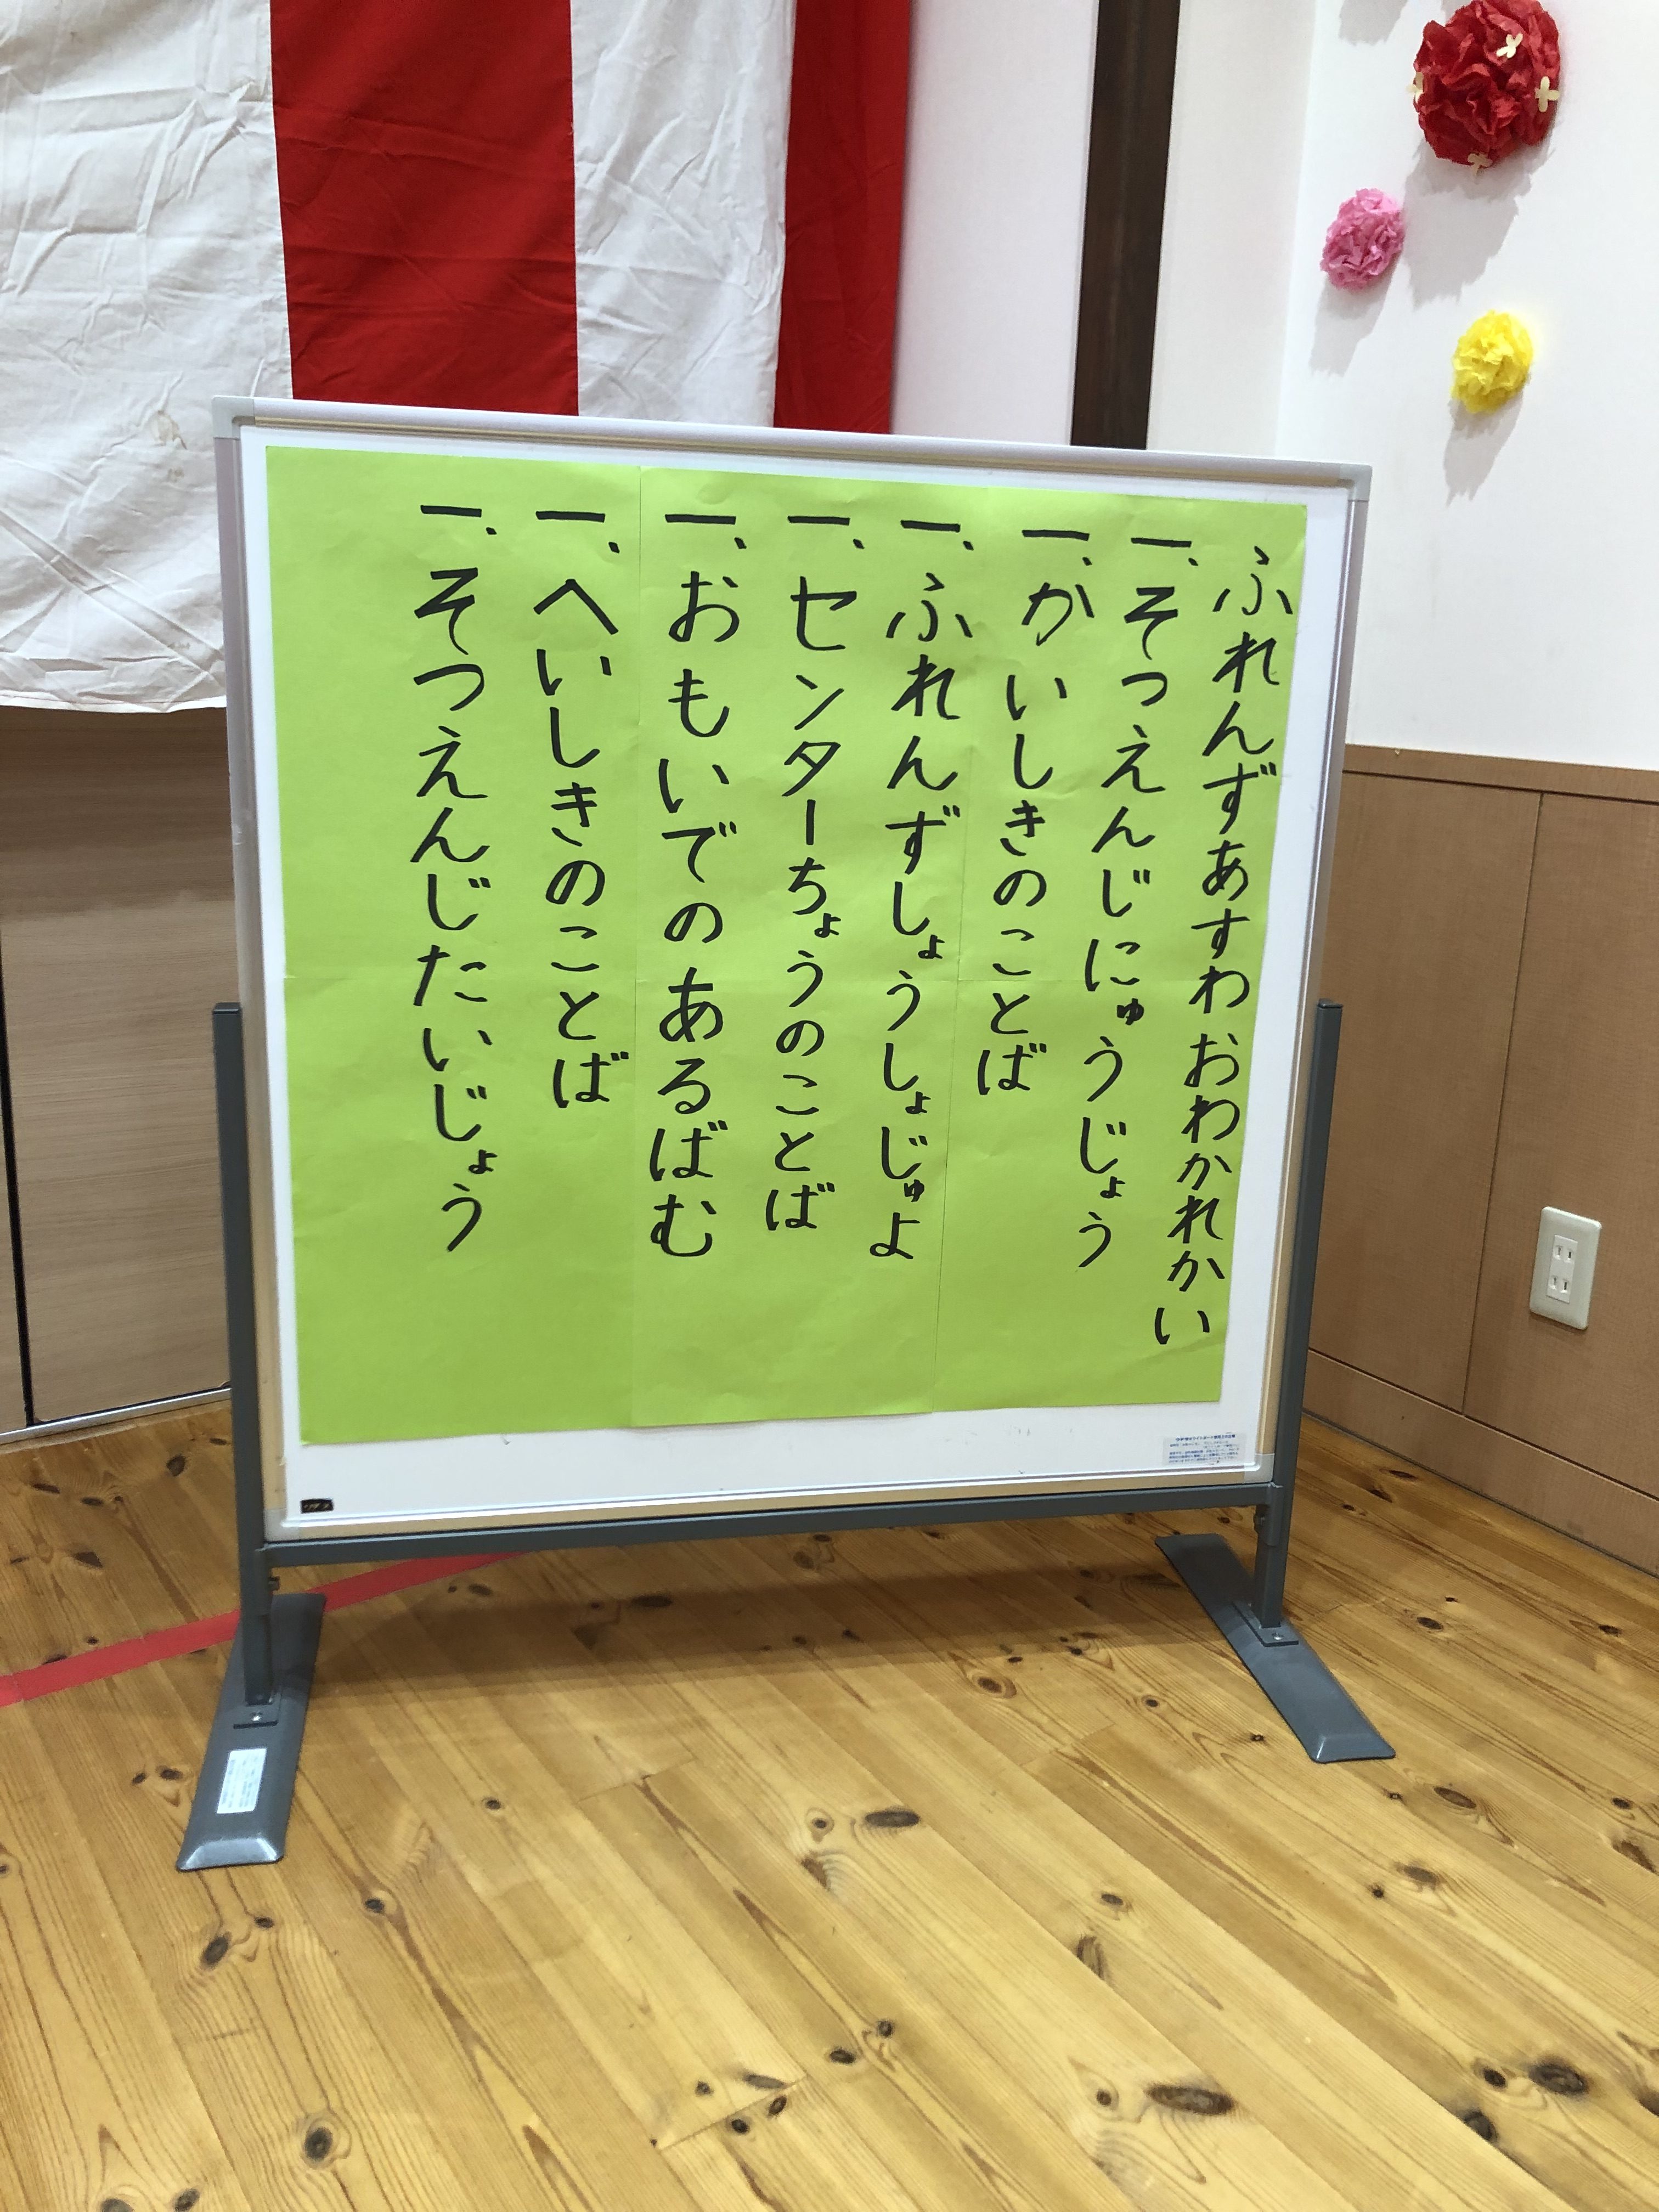 ふれんずあすわおわかれかい
一、そつえんじにゅうじょう
一、かいしきのことば
一、ふれんずしょうしょじゅよ
一、センターちょうのことば
一、おもいでのあるばむ
一、へいしきのことば
一、そつえんじたいじょう